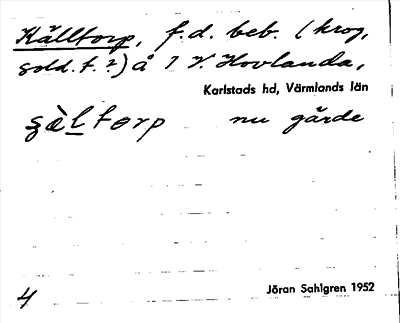 Källtorp, f.d. beb. (krog,
sold.t.?) å 7 V. Hovlanda,
Karlstads hd, Värmlands län
s̨ὲltorp nu gärde
4 Jöran Sahlgren 1952